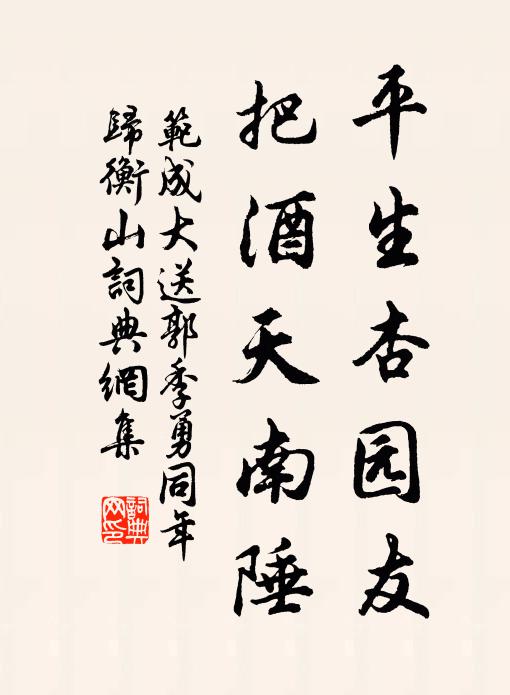 平生杏园友
把酒天南陲
範成大送郭季勇同年
歸衡山詞典網集
詞典
网印